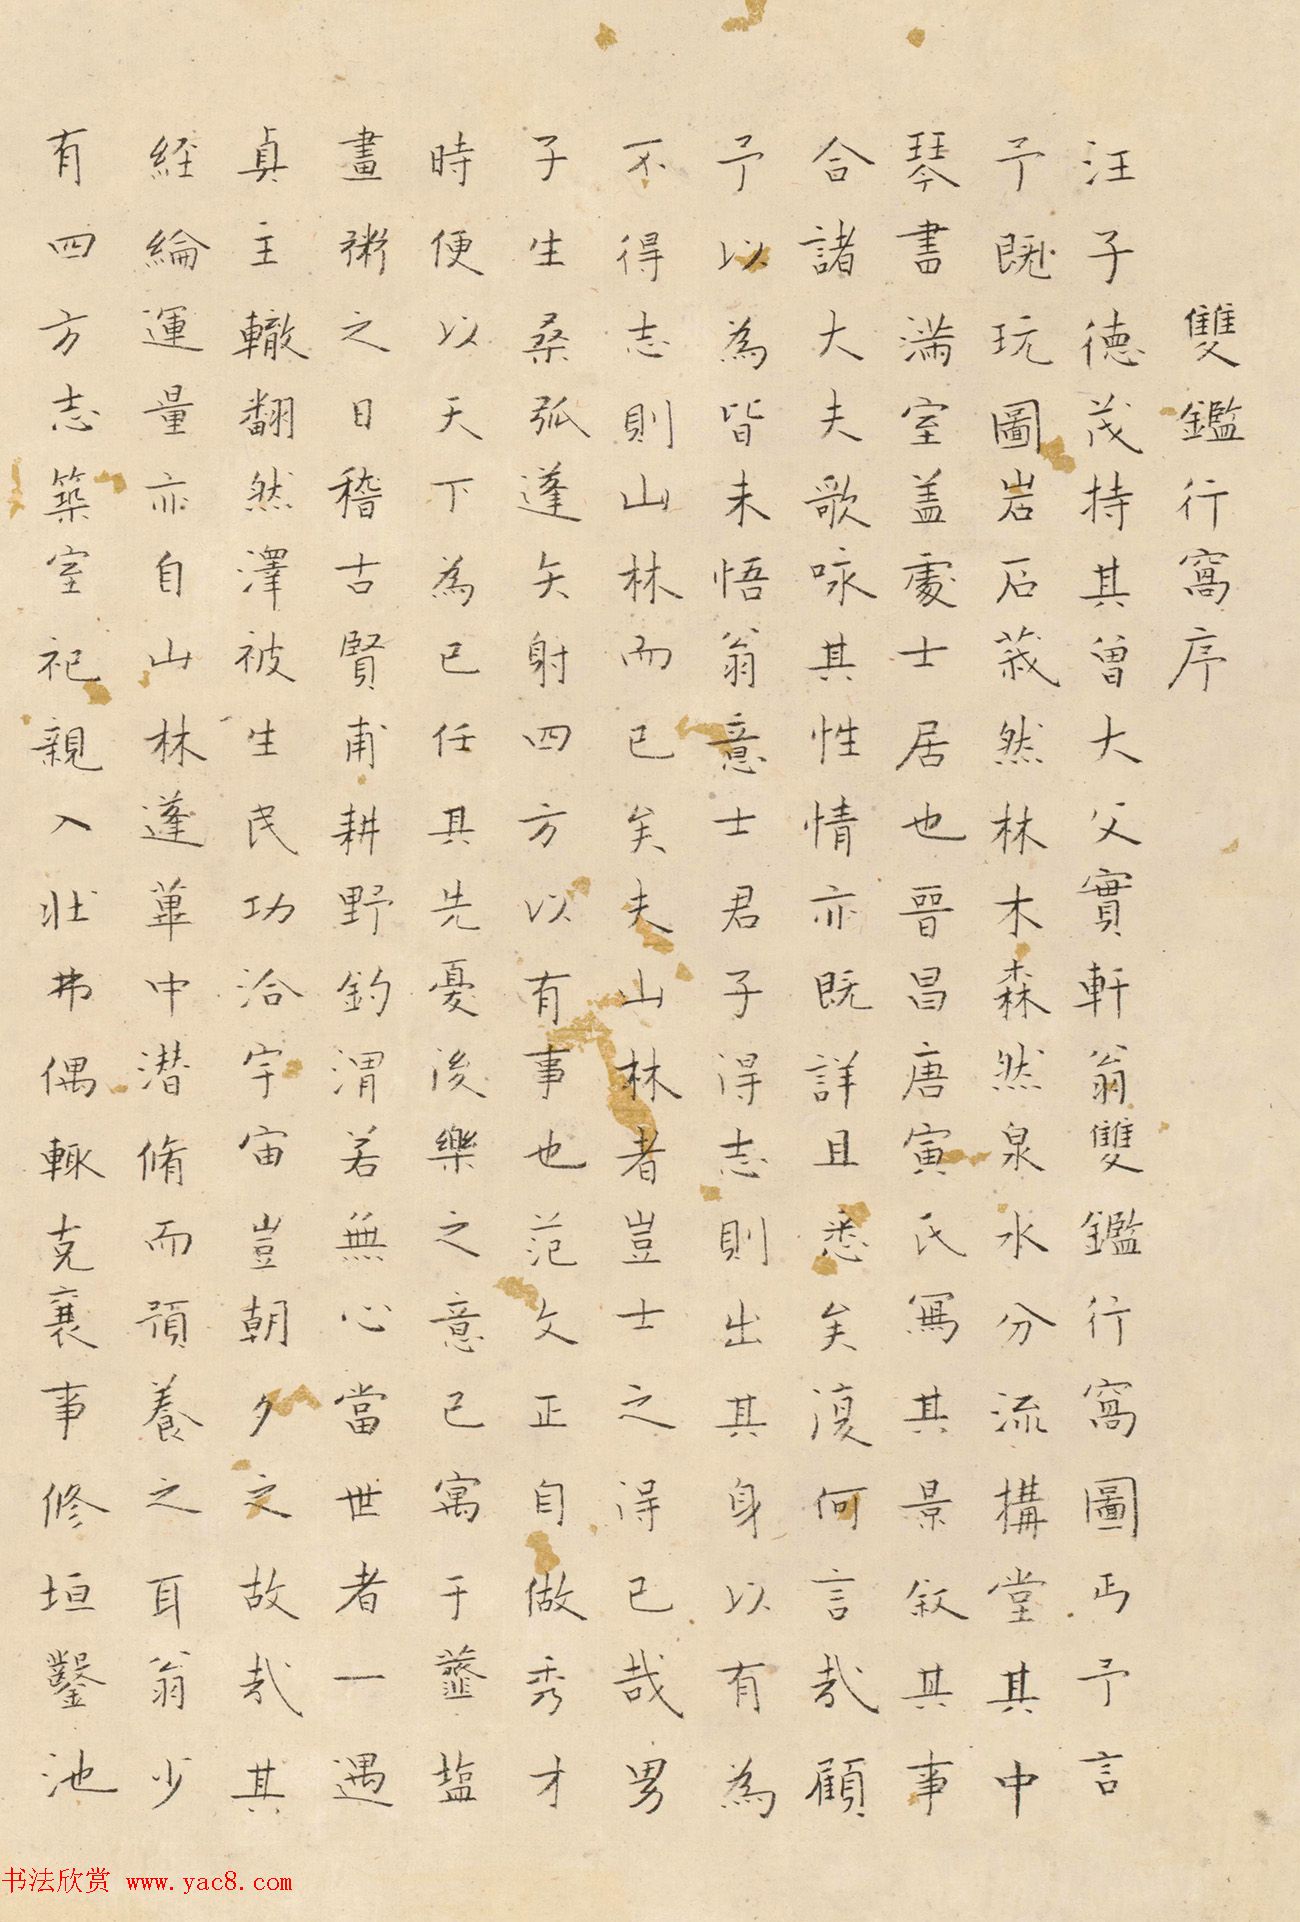 雙鑑行窩序
汪子德茂持其曾大父實軒翁雙鑑行窩圖丐予言
予既玩圖岩石莪然林木森然泉水分流構堂其中
琴書滿室盖處士居也晉昌唐寅氏寫其景叙其事
合諸大夫歌咏其性情亦既詳且悉矣復何言哉顧
予以為皆未悟翁意士君子得志則出其身以有為
不得志則山林而已矣夫山林者豈士之得已哉男
子生桑弧蓬矢射四方以有事也范文正自做秀才
時便以天下為已任其先憂後樂之意已寓于虀塩
畫粥之日稽古賢甫耕野釣渭若無心當世者一遇
真主轍翻然澤被生民功洽宇宙豈朝夕之故哉其
經綸運量亦自山林蓬蓽中潜脩而預養之耳翁少
有四方志築室祀親入壯弗偶輙克襄事修垣鑿池
书法欣赏 www.yac8.com